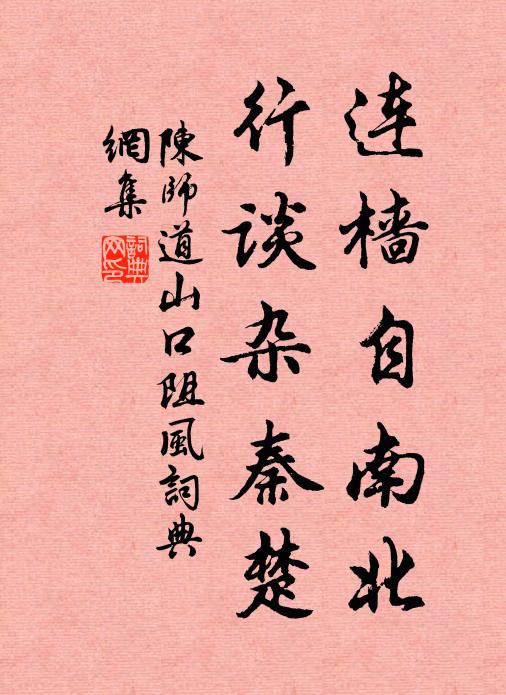 连檣自南北
行谈杂秦楚
陳師道山口阻風詞典
網集
詞典
网印